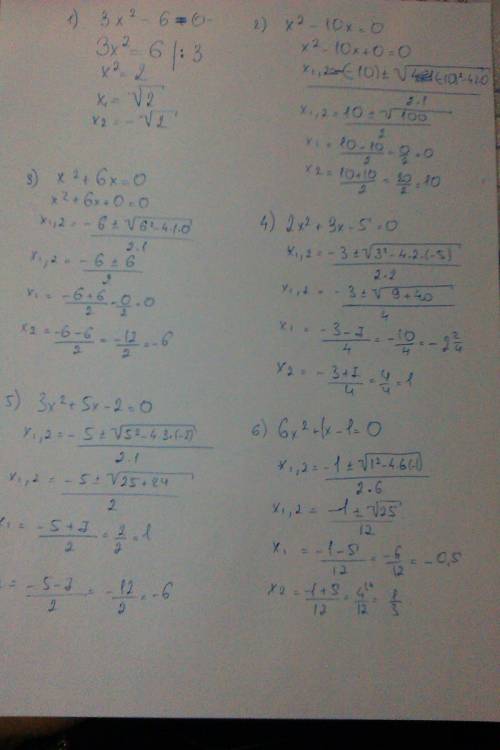 1) 3x² - 6 = 0
3x² = 6 |:3
x² = 2
x₁ = √2
x₂ = -√2
2) x² - 10x = 0
x² - 10x + 0 = 0
x₁,₂ = 10 ± √100 / 2
x₁ = 10 - 10 / 2 = 0/2 = 0
x₂ = 10 + 10 / 2 = 20/2 = 10
3) x² + 6x = 0
x² + 6x + 0 = 0
x₁,₂ = -6 ± √6² - 4·1·0 / 2·1
x₁,₂ = -6 ± 6 / 2
x₁ = -6 + 6 / 2 = 0/2 = 0
x₂ = -6 - 6 / 2 = -12/2 = -6
4) 2x² + 3x - 5 = 0
x₁,₂ = -3 ± √3² - 4·2·(-5) / 2·2
x₁,₂ = -3 ± √9 + 40 / 4
x₁ = -3 - 7 / 4 = -10/4 = -2 2/4
x₂ = -3 + 7 / 4 = 4/4 = 1
5) 3x² + 5x - 2 = 0
x₁,₂ = -5 ± √5² - 4·3·(-2) / 2·1
x₁,₂ = -5 ± √25 + 24 / 2
x₁ = -5 + 7 / 2 = 2/2 = 1
= -5 - 7 / 2 = -12/2 = -6
6) 6x² + 1x - 1 = 0
x₁,₂ = -1 ± √1² - 4·6·(-1) / 2·6
x₁,₂ = -1 ± √25 / 12
x₁ = -1 - 5 / 12 = -6/12 = -0,5
x₂ = -1 + 5 / 12 = 4/12 = 1/3